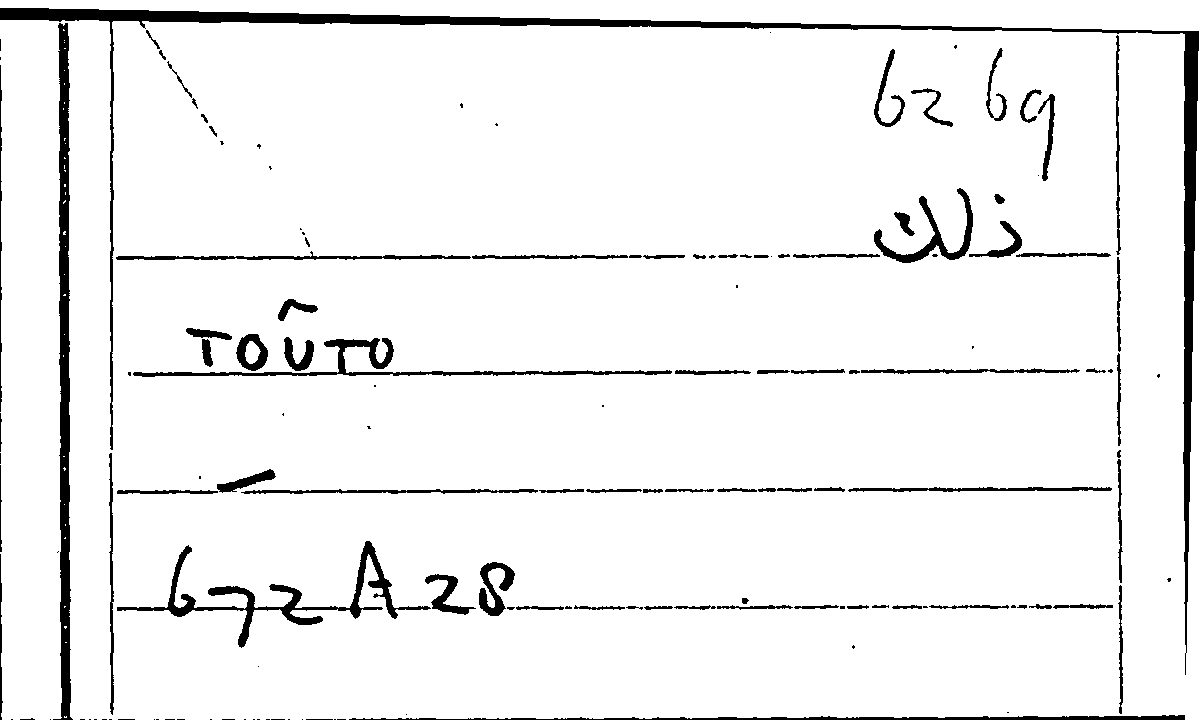 6269
ذلك
τοῦτο
–
672 A 28